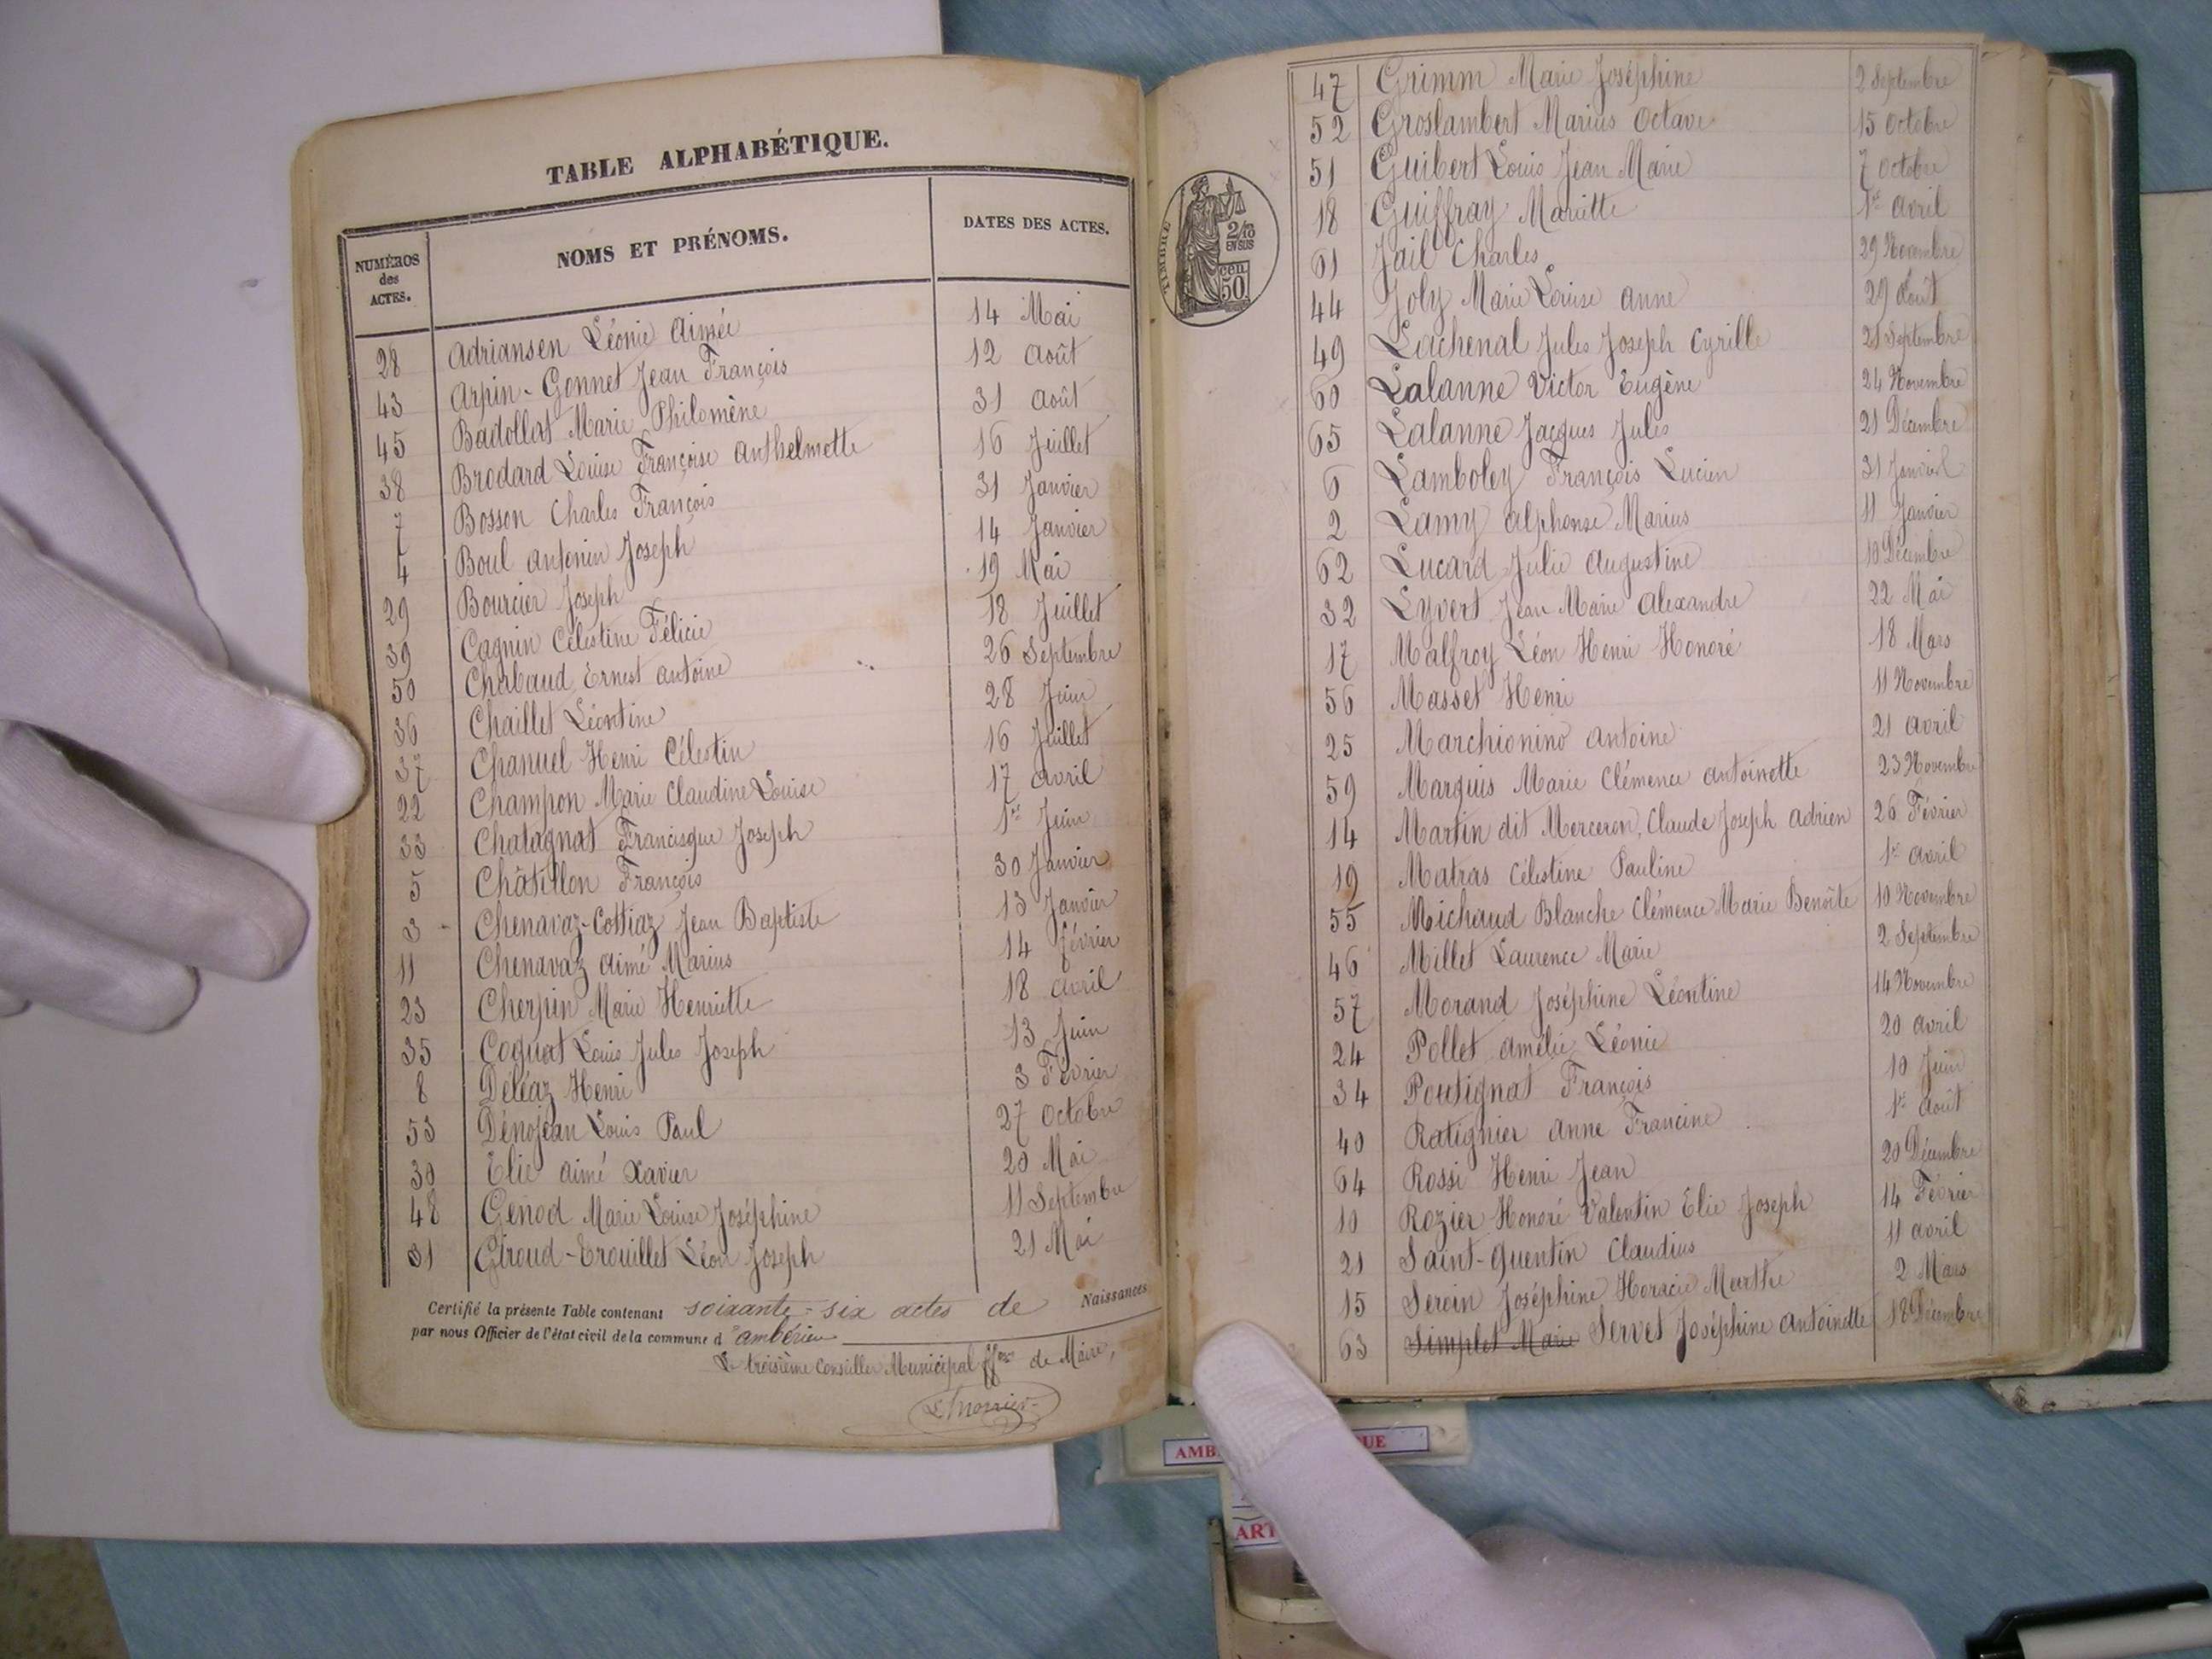 TABLE ALPHABÉTIQUE.
NUMÉROS des ACTES. NOMS ET PRÉNOMS. DATES DES ACTES.
28 Adriansen Léonie Aimée 14 Mai
43 Arpin-Gonnet Jean François 12 Août
45 Badollat Marie Philomène 31 Août
38 Brodard Louise Françoise Anthelmette 16 Juillet
7 Bosson Charles François 31 Janvier
4 Boul Antonin Joseph 14 Janvier
29 Bourcier Joseph 19 Mai
39 Cagnin Célestine Félicie 18 Juillet
50 Chabaud Ernest Antoine 26 Septembre
36 Chaillet Léontine 28 Juin
37 Chanuel Henri Célestin 16 Juillet
22 Champon Marie Claudine Louise 17 Avril
33 Chatagnat Francisque Joseph 1er Juin
5 Châtillon François 30 Janvier
3 Chenavaz-Cottiaz Jean Baptiste 13 Janvier
11 Chenavaz Aimé Marius 14 février
23 Cherpin Marie Henriette 18 Avril
35 Coquat Louis Jules Joseph 13 Juin
8 Déléaz Henri 3 Février
53 Dénojean Louis Paul 27 Octobre
30 Elie Aimé Xavier 20 Mai
48 Genod Marie Louise Joséphine 11 Septembre
31 Giroud-Trouillet Léon Joseph 21 Mai
Certifié la présente Table contenant soixante-six actes de Naissances
par nous Officier de l'état civil de la commune d'Ambérieu
Le troisième Conseiller Municipal ffons de Maire,
TIMBRE
2/10
EN SUS
50 cen
47 Grimm Marie Joséphine 2 Septembre
52 Groslambert Marius Octave 15 Octobre
51 Guibert Louis Jean Marie 7 Octobre
18 Guiffray Mariette 1er Avril
61 Jail Charles 29 Novembre
44 Joly Marie Louise Anne 29 Août
49 Lachenal Jules Joseph Cyrille 21 Septembre
60 Lalanne Victor Eugène 24 Novembre
65 Lalanne Jacques Jules 21 Décembre
6 Lamboley François Lucien 31 Janvier
2 Lamy Alphonse Marius 11 Janvier
62 Lucard Julie Augustine 10 Décembre
32 Lyvert Jean Marie Alexandre 22 Mai
17 Malfroy Léon Henri Honoré 18 Mars
56 Masset Henri 11 Novembre
25 Marchionino Antoine 21 Avril
59 Marquis Marie Clémence Antoinette 23 Novembre
14 Martin dit Merceron, Claude Joseph Adrien 26 Février
19 Matras Célestine Pauline 1er Avril
55 Michaud Blanche Clémence Marie Benoîte 10 Novembre
46 Millet Laurence Marie 2 Septembre
57 Morand Joséphine Léontine 14 Novembre
24 Pollet Amélie Léonie 20 Avril
34 Poutignat François 10 Juin
40 Ratignier Anne Francine 1er Août
64 Rossi Henri Jean 20 Décembre
10 Rozier Honoré Valentin Elie Joseph 14 Février
21 Saint-Quentin Claudius 11 Avril
15 Seroin Joséphine Horacie Marthe 2 Mars
63 Simplet Marie Servet Joséphine Antoinette 18 Décembre
AMB UE
ART